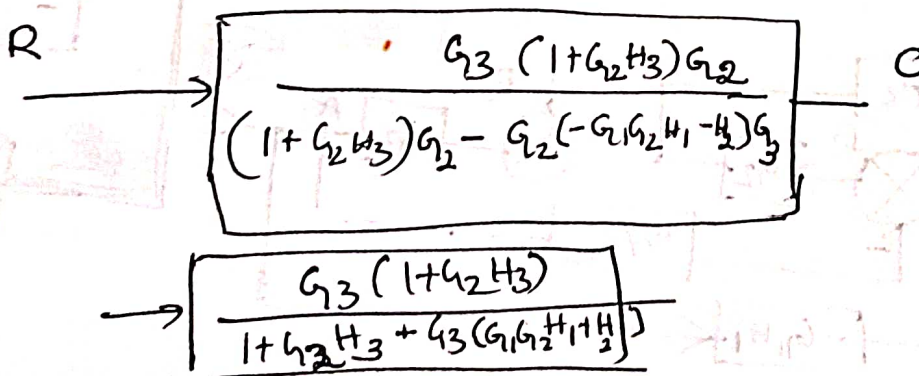 R
G3 (1+G2H3)G2
C
(1+G2H3)G2 - G2(-G1G2H1-H2)G3
G3(1+G2H3)
1+G2H3 + G3(G1G2H1+H2)